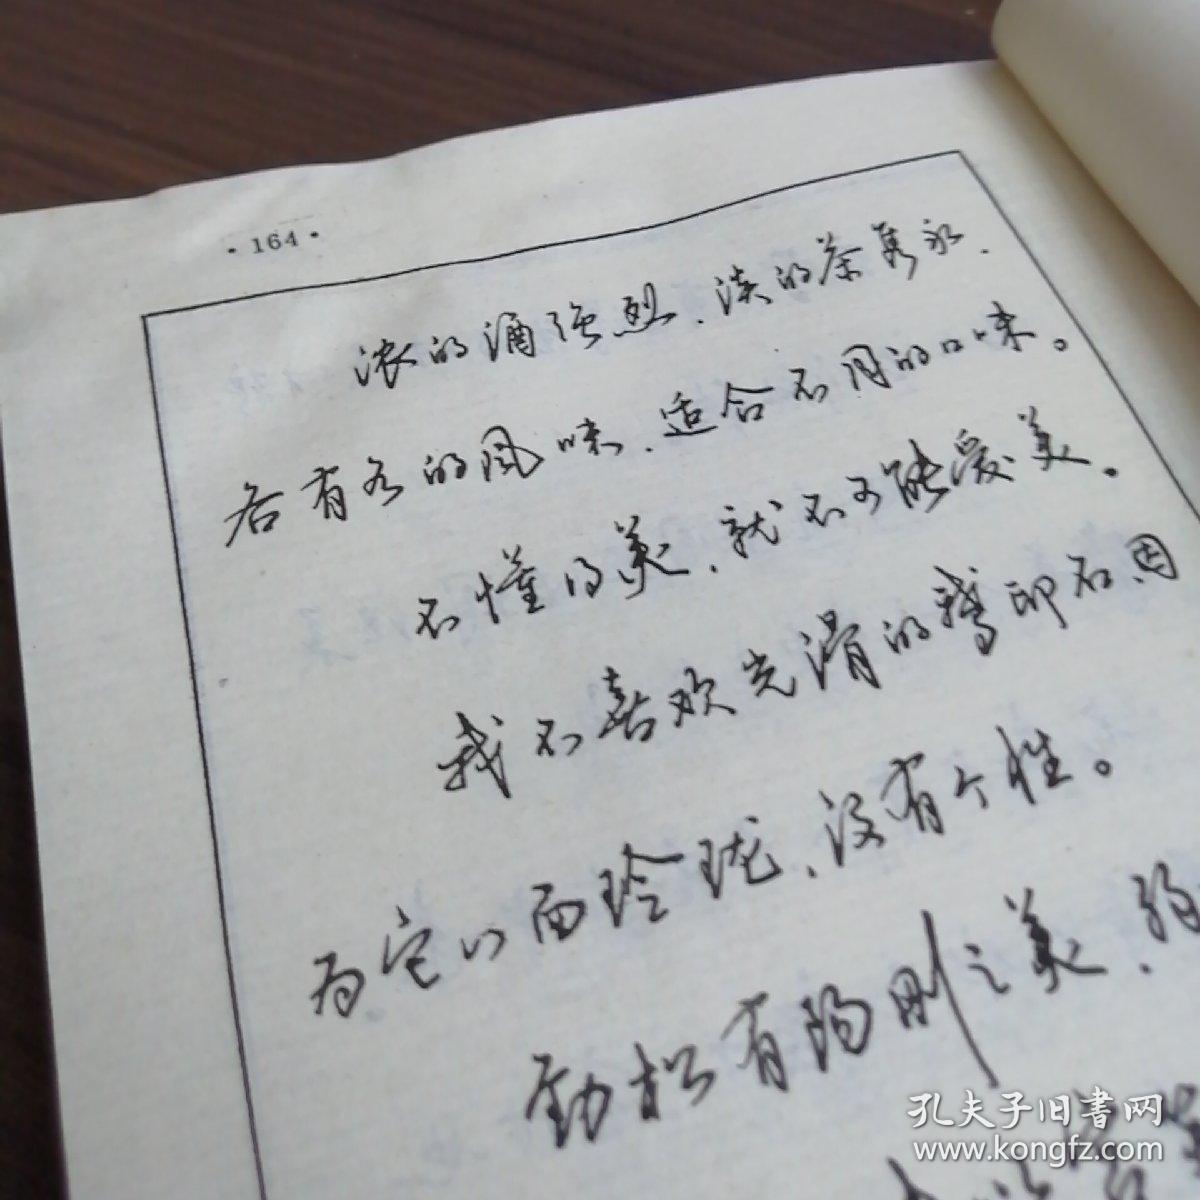 ·164·
浓的酒强烈、淡的茶隽永、
各有各的风味、适合不同的口味。
不懂得美、就不可能爱美。
我不喜欢光滑的鹅卵石、因
为它八面玲珑、没有个性。
劲松有阳刚之美、
孔夫子旧書网
www.kongfz.com